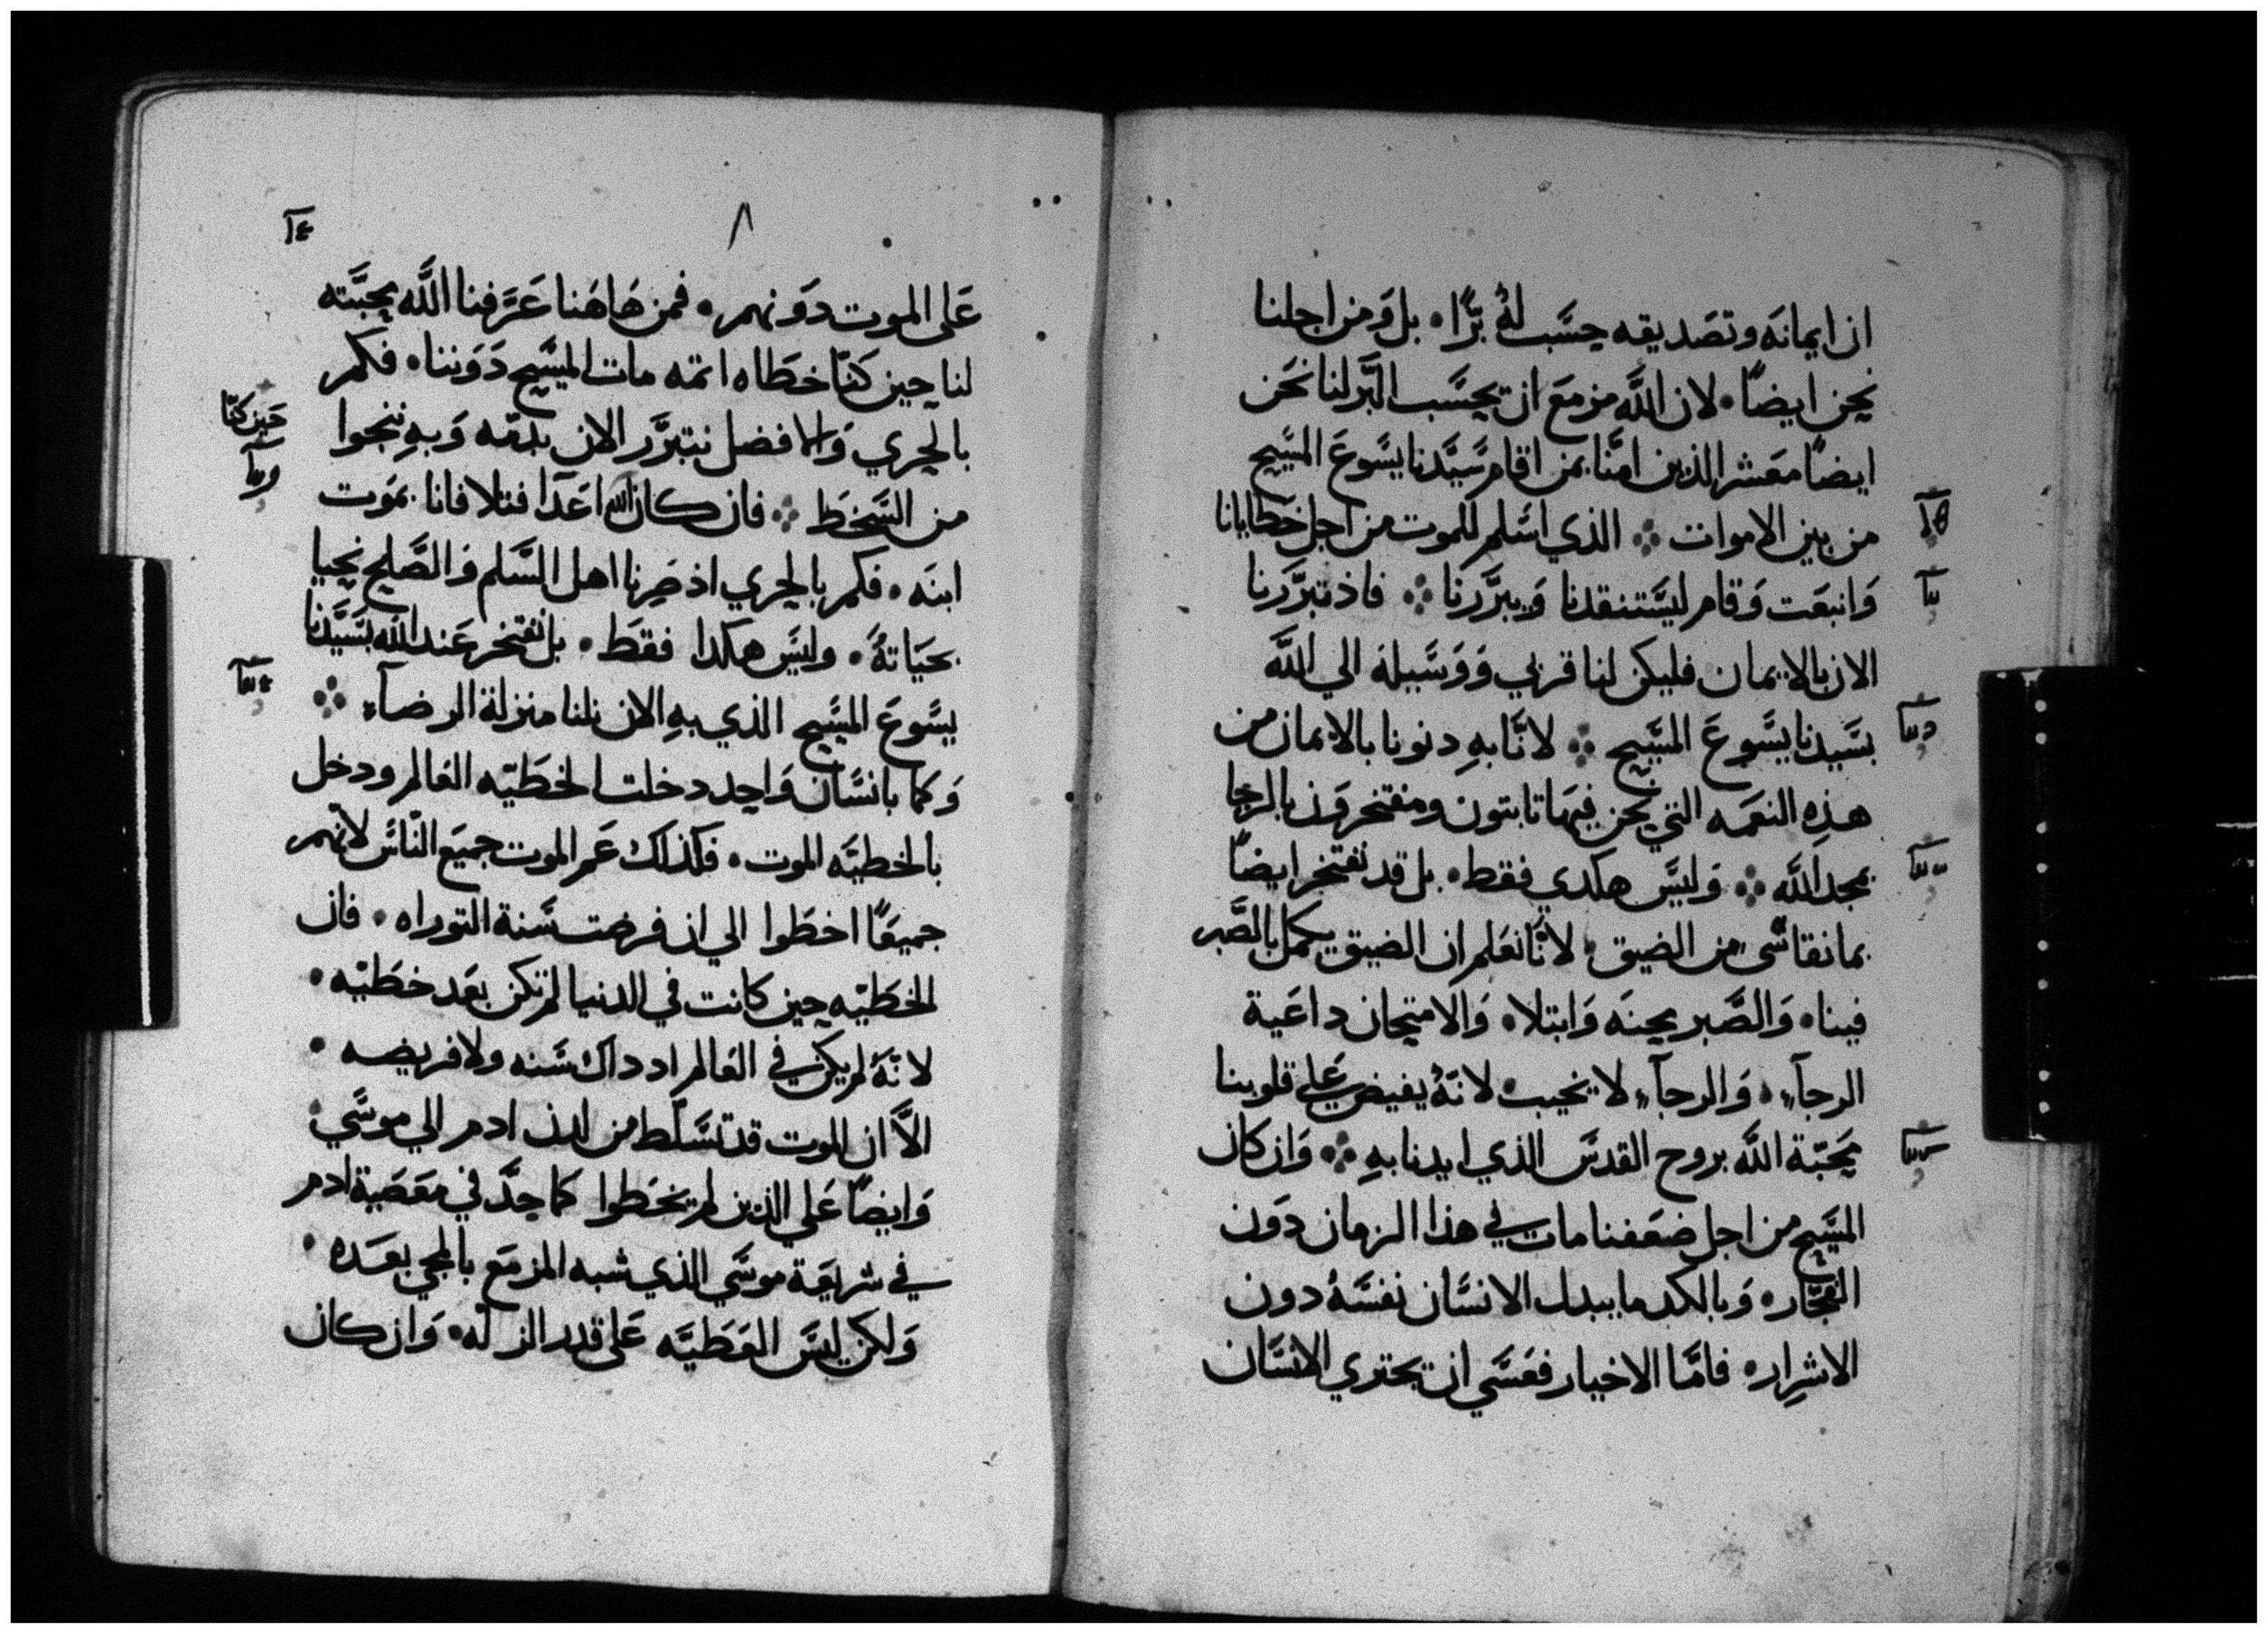 ان ايمانه وتصديقه حسب له برًا • بل ومن اجلنا
نحن ايضًا • لان الله مزمع ان يحسب البر لنا نحن
ايضًا معشر الذين امنّا بمن اقام سيدنا يسوع المسيح
من بين الاموات ܀ الذي اسلم للموت من اجل خطايانا
وانبعت وقام ليستنقدنا ويبررنا ܀ فاذ تبررنا
الان بالايمان فليكن لنا قربي ووسيله الي الله
بسيدنا يسوع المسيح ܀ لانّا به دنونا بالايمان من
هذه النعمه التي نحن فيها تابتون ومفتخرون بالرجا
بمجد الله ܀ وليس هكدي فقط • بل قد نفتخر ايضًا
بما نقاسي من الضيق • لانّا نعلم ان الضيق يكمل بالصبر
فينا • والصبر محنه وابتلا • والامتحان داعية
الرجآء • والرجآء لا يخيب • لانّه يفيض علي قلوبنا
محبّة الله بروح القدس الذي ايدنا به ܀ وان كان
المسيح من اجل ضعفنا مات في هذا الزمان دون
الفجّار • وبالكد ما يبدل الانسان نفسه دون
الاشرار • فامّا الاخيار فعسي ان يجتري الانسان
٨
على الموت دونهم • فمن هاهنا عرّفنا الله بمحبّته
لنا حين كنّا خطاه اتمه مات المسيح دوننا • فكم
بالحري والافضل نتبرر الان بدمّه وبه ننجوا
حين كنّا
من السخط ܀ فان كان الله اعدا فتلافانا بموت
ابنه • فكم بالحري اذ صرنا اهل السلم والصلح نحيا
بحياته • وليس هكدا فقط • بل نفتخر عند الله بسيّدنا
يسوع المسيح الذي به الان نلنا منزلة الرضآء ܀
وكما بانسان واحد دخلت الخطيّه العالم ودخل
بالخطيّه الموت • فكذلك عم الموت جميع النّاس لانهم
جميعًا اخطوا الي ان فرضت سنة التوراه • فان
الخطيّه حين كانت في الدنيا لم تكن بعد خطيّه •
لانّه لم يكن في العالم اد داك سنه ولا فريضه •
الاّ ان الموت قد تسلّط من لدن ادم الي موسي •
وايضًا علي الذين لم يخطوا كما حدّ في معصية ادم
في شريعة موسي الذي شبه المزمع بالمجي بعده •
ولكن ليس العطيّه على قدر الزلّه • وان كان